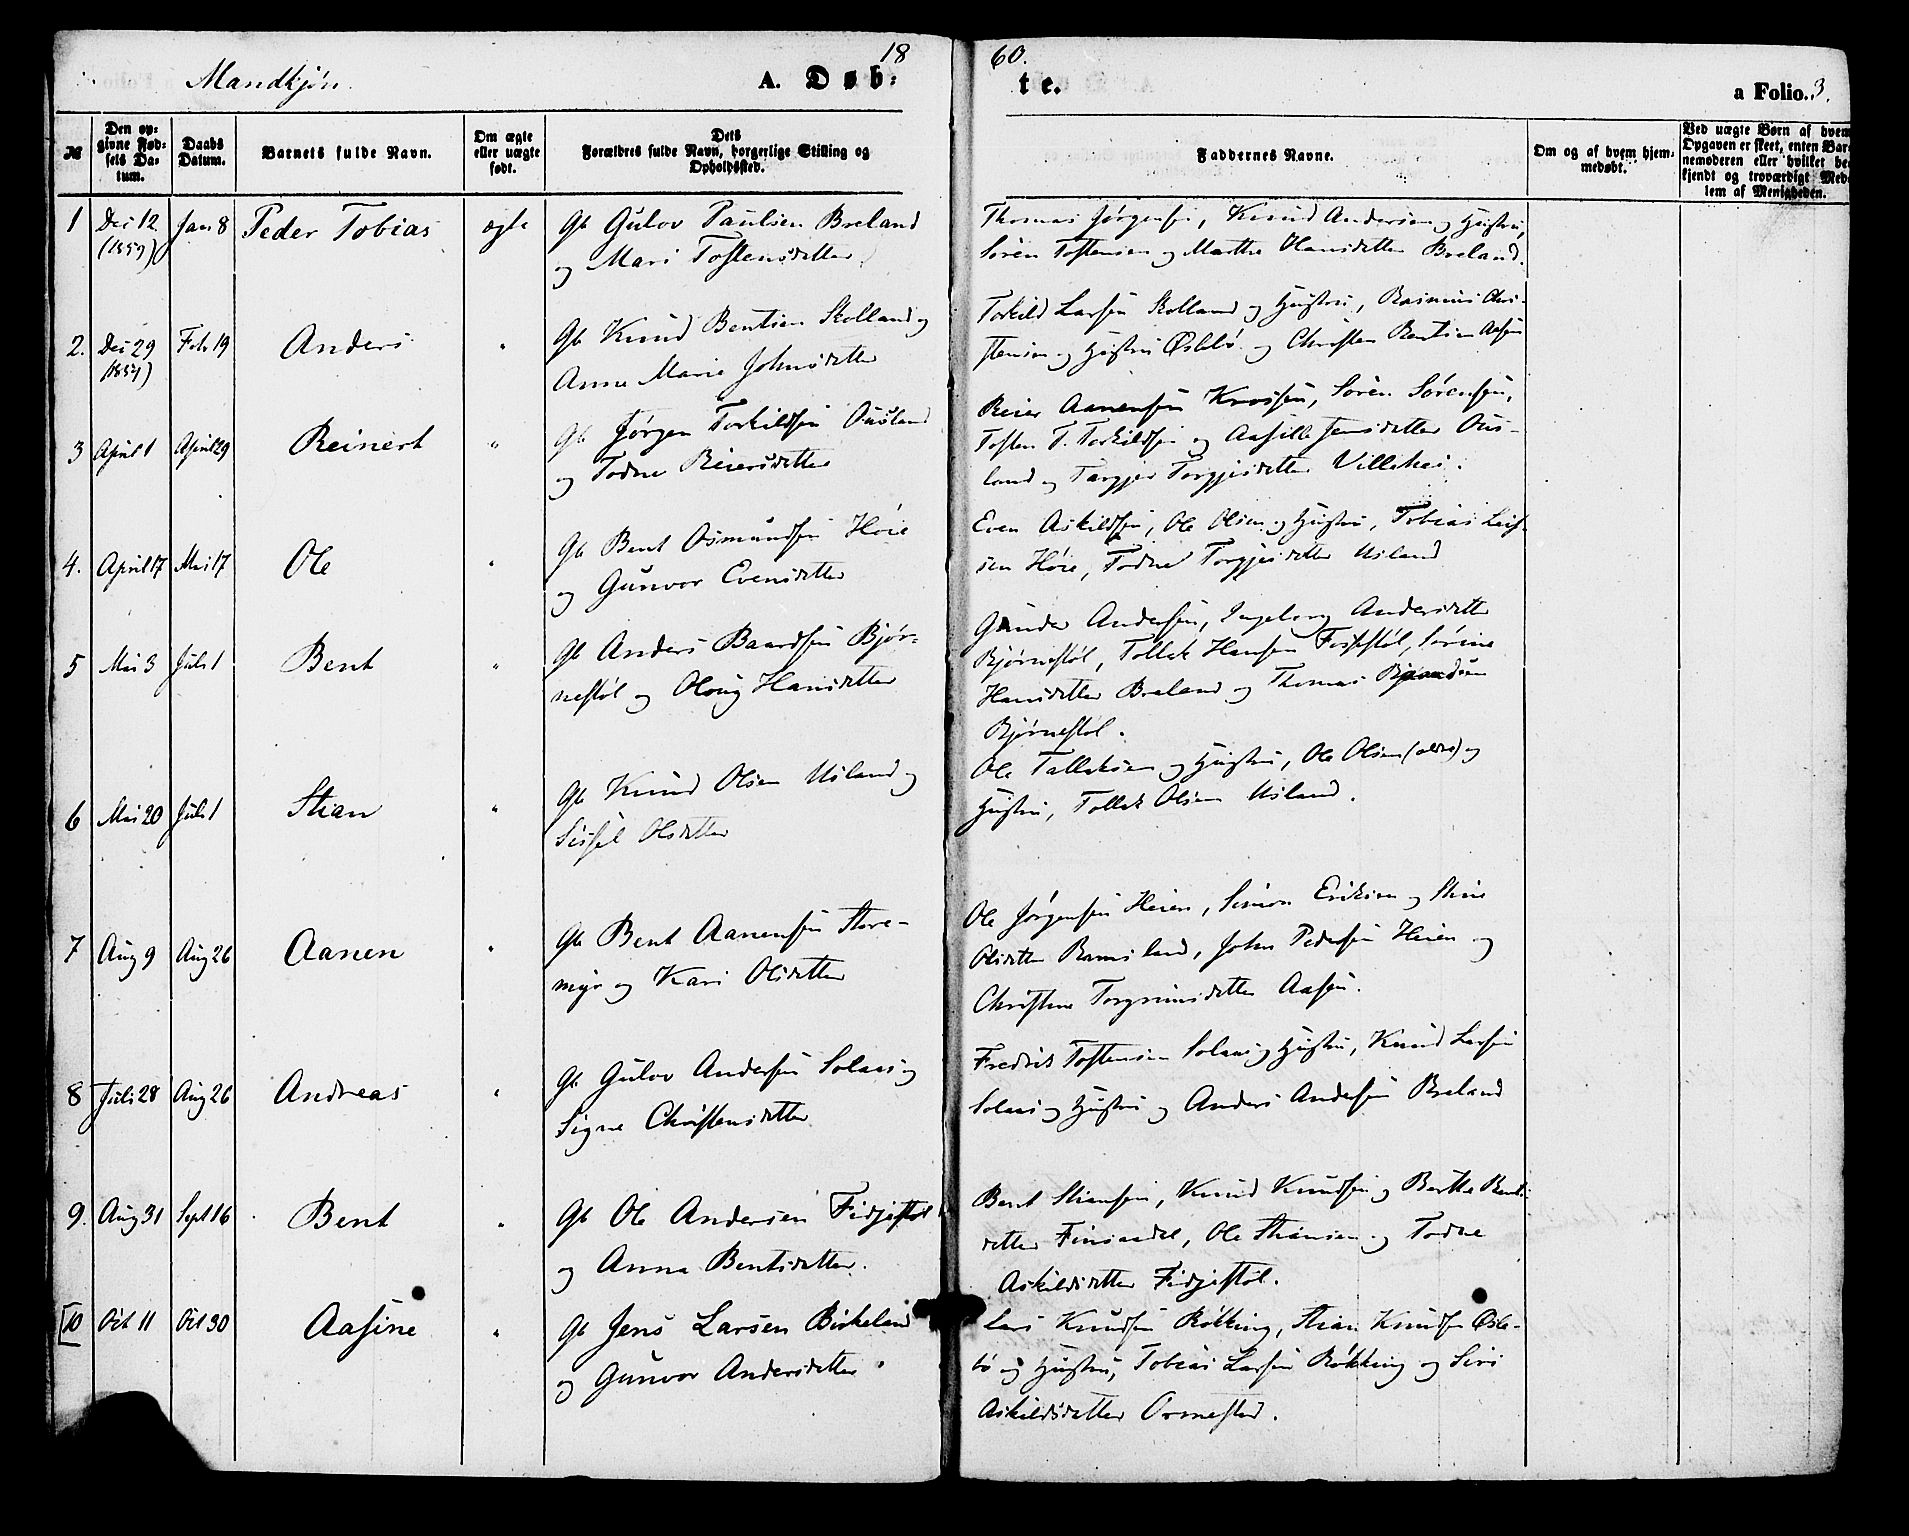 Mandkjøn.
A. Døb:
18
60.
te.
a Folio. 3.
№
Den opgivne Fødsels Datum.
Daabs Datum.
Barnets fulde Navn.
Om ægte eller uægte født.
Dets Forældres fulde Navn, borgerlige Stilling og Opholdssted.
Faddernes Navne.
Om og af hvem hjemmedøbt.
Ved uægte Børn af hvem Opgaven er skeet, enten Barnemoderen eller hvilket bekjendt og troværdigt Medlem af Menigheden.
1 Dec 12 (1859) Jan 8 Peder Tobias ægte Gb Gulov Paulsen Breland
og Mari Tostensdatter
Thomas Jørgensen, Knud Andersen og Hustru,
Søren Tostensen og Marthe Hansdatter Breland.
2. Dec 29 1859) Febr 19 Anders " Gb Knud Bentsen Skolland og
Anne Marie Johnsdatter
Torkild Larsen Skolland og Hustru, Rasmus Chri-
stensen og Hustru Øslebø og Christen Bentsen Aasen
3 April 1 April 29 Reinert " Gb Jørgen Torkildsen Ousland
og Todne Reiersdatter
Reier Aanensen Krossen, Søren Sørensen,
Tosten T. Torkildsen og Aasille Jensdatter Ous-
land og Targjer Torgjersdatter
4. April 17 Mai 17 Ole " Gb Bent Osmundsen Høie
og Gunvor Evensdatter
Even Askildsen, Ole Olsen og Hustru, Tobias Leif-
sen Høie, Todne Torgjersdatter Usland
5 Mai 3 Juli 1 Bent " Gb Anders Baardsen Bjør-
nestøl og Oloug Hansdatter
Gunder Andersen, Ingeborg Andersdatter
Bjørnestøl, Tollek Hansen Fossestøl, Sørine
Hansdatter Breland og Thomas
Bjørnestøl.
6 Mai 20 Juli 1 Stian " Gb Knud Olsen Usland og
Sissel Olsdatter
Ole Talleksen og Hustru, Ole Olsen (ældre) og
Hustru, Tollek Olsen Usland.
7 Aug 9 Aug 26 Aanen " Gb Bent Aanensen Store-
myr og Kari Olsdatter
Ole Jørgensen Heien, Simon Eriksen og Stine
Olsdatter Ramsland, John Pedersen Heien og
Christine Torgrimsdatter Aasen.
8 Juli 28 Aug 26 Andreas " Gb Gulov Andersen Solaas og
Signe Christensdatter
Fredrik Tostensen Solaas og Hustru, Knud Larsen
Solaas og Hustru og Anders Andersen Breland
9. Aug 31 Sept 16 Bent " Gb Ole Andersen Fidjestøl
og Anna Bentsdatter.
Bent Stiansen, Knud Knudsen og Berthe Bents-
datter Finsaadal, Ole Stiansen og Todne
Askildsdatter Fidjestøl.
10 Oct 11 Oct 30 Aasine " Gb Jens Larsen Birkeland
og Gunvor Andersdatter
Lars Knudsen Røkking, Stian Knudsen Øsle-
bø og Hustru, Tobias Larsen Røkking og Siri
Askildsdatter Ormestad.